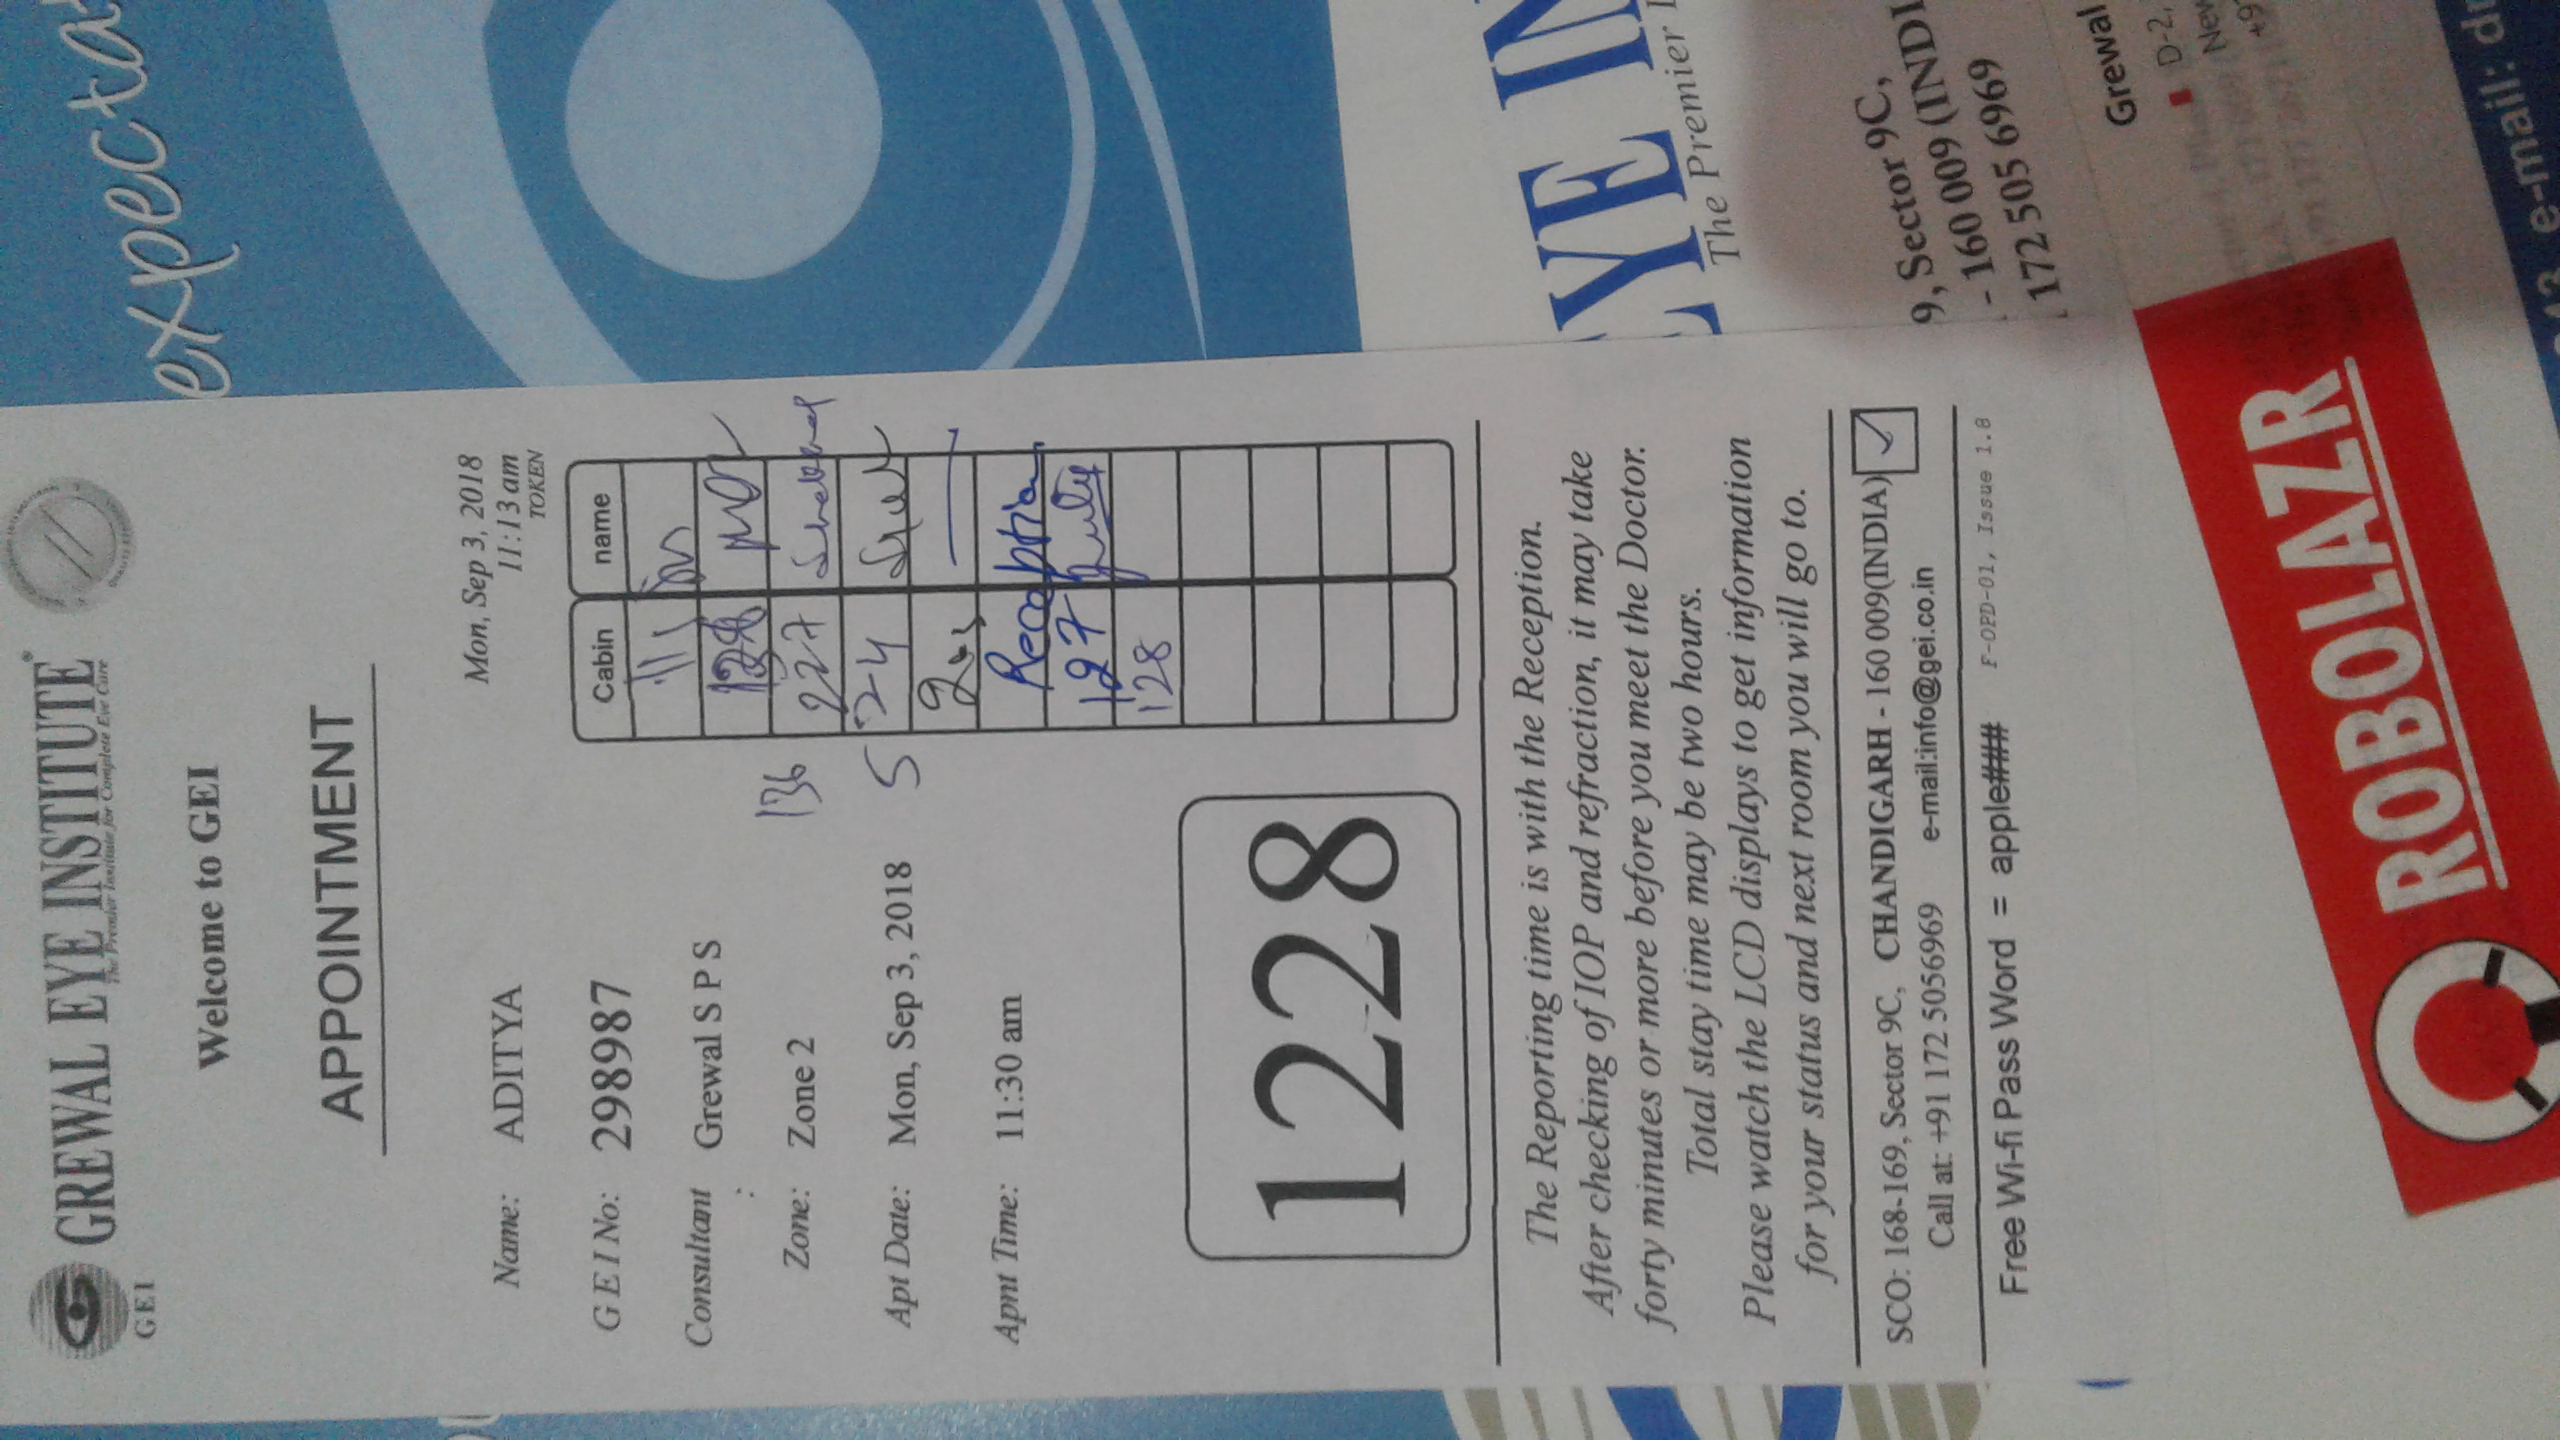 GREWAL EYE INSTITUTE
The Premier Institute for Complete Eye Care
GEI
Welcome to GEI
APPOINTMENT
Mon, Sep 3, 2018
11:13 am
TOKEN
Name: ADITYA
GEI No: 298987
Consultant : Grewal S P S
Zone: Zone 2
Apt Date: Mon, Sep 3, 2018
Apnt Time: 11:30 am
Cabin name
128
136 227
5 24
Reception
127
128
1228
The Reporting time is with the Reception.
After checking of IOP and refraction, it may take
forty minutes or more before you meet the Doctor.
Total stay time may be two hours.
Please watch the LCD displays to get information
for your status and next room you will go to.
SCO: 168-169, Sector 9C, CHANDIGARH - 160 009(INDIA)
Call at: +91 172 5056969 e-mail:info@gei.co.in
Free Wi-fi Pass Word = apple### F-OPD-01, Issue 1.8
expecta
EYE IN
The Premier I
9, Sector 9C,
- 160 009 (INDI
172 505 6969
Grewal
D-2,
New
+9
ROBOLAZR
e-mail: dr